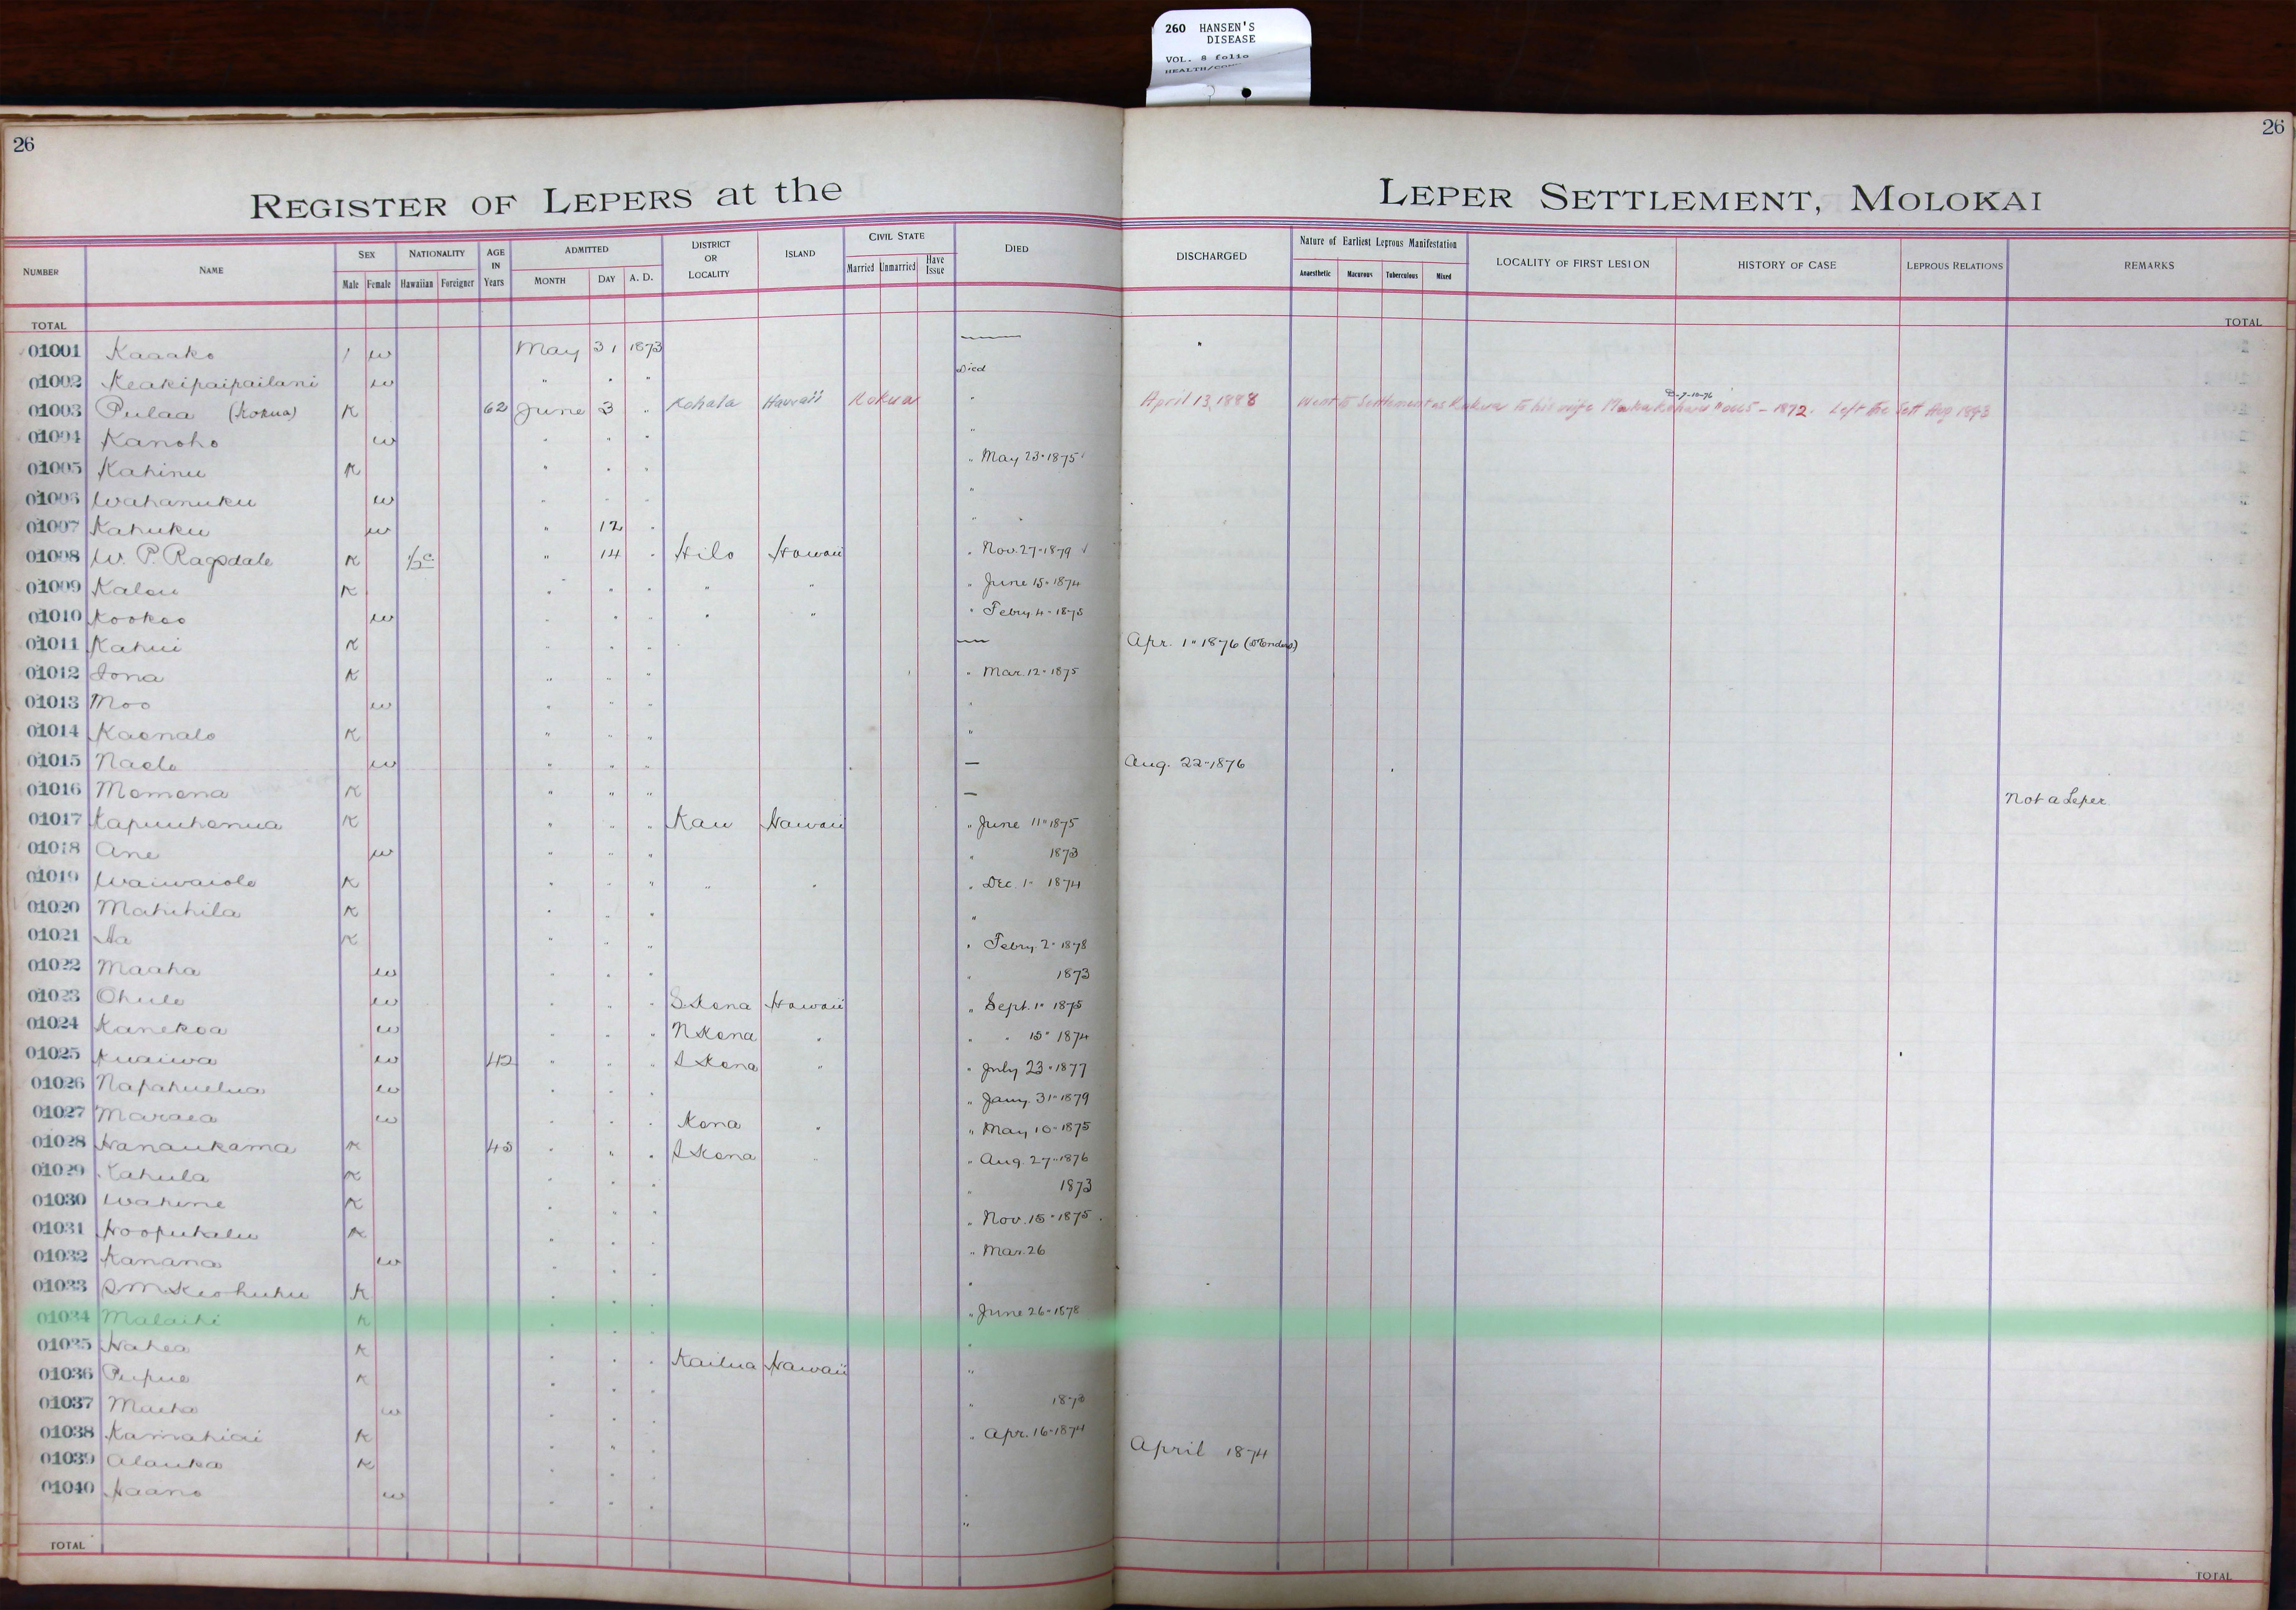 260 HANSEN'S
DISEASE
VOL. 8 folio
26
26
REGISTER OF LEPERS at the LEPER SETTLEMENT, MOLOKAI
NUMBER NAME SEX Male Female NATIONALITY Hawaiian Foreigner AGE IN Years ADMITTED MONTH DAY A. D. DISTRICT OR LOCALITY ISLAND CIVIL STATE Married Unmarried Have Issue DIED DISCHARGED Nature of Earliest Leprous Manifestation Anaesthetic Macurous Tuberculous Mixed LOCALITY OF FIRST LESION HISTORY OF CASE LEPROUS RELATIONS REMARKS
TOTAL TOTAL
01001 Kaaako w May 31 1873
01002 Keakipaipailani w " " " Died
01003 Pulaa (Kokua) K 62 June 3 " Kohala Hawaii Kokua " April 13, 1888 Went to Settlement as Kokua to his wife 1872. Left the Sett Aug 1893
01004 Kanoho w " " " "
01005 Kahinu K " " " " May 23 1875
01006 Wahanuku w " " " "
01007 Kahuku w " 12 " "
01008 W. P. Ragsdale K ½ c " 14 " Hilo Hawaii " Nov. 27 1879
01009 Kalou K " " " " " " June 15 1874
01010 Kookoo w " " " " " " Febry 4 - 1875
01011 Kahui K " " " — Apr. 1 " 1876
01012 Iona K " " " " Mar. 12 - 1875
01013 Moo w " " " "
01014 Kaonalo K " " " "
01015 Naelo w " " " — Aug. 22 - 1876
01016 Momona K " " " — Not a Leper
01017 Kapuuhonua K " " " Kau Hawaii " June 11 " 1875
01018 Ane w " " " " 1873
01019 Waiwaiole K " " " " " " Dec. 1 - 1874
01020 Mahihila K " " " "
01021 Aa K " " " " Febry. 2 - 1878
01022 Maaha w " " " " 1873
01023 Ohule w " " " S. Kona Hawaii " Sept. 1 " 1875
01024 Kanekoa w " " " N Kona " " " 15 " 1874
01025 Kuaiwa w 42 " " " S Kona " " July 23 - 1877
01026 Napahuelua w " " " " Jany. 31 - 1879
01027 Maraea w " " " Kona " " May 10 - 1875
01028 Hanaukama K 43 " " " S Kona " " Aug. 27 - 1876
01029 Kahula K " " " " 1873
01030 Wahine K " " " " Nov. 15 - 1875
01031 Hoopukalu K " " " " Mar. 26
01032 Kanana w " " " "
01033 S M Keohuhu K " " " " June 26 - 1878
01034 Malaihi K " " " "
01035 Hahea K " " " Kailua Hawaii "
01036 Pupue K " " " " 1873
01037 Maeha w " " " " Apr. 16 - 1874
01038 Kamahiai K " " " April 1874
01039 Alauka K " " " "
01040 Haano w " " " "
TOTAL TOTAL